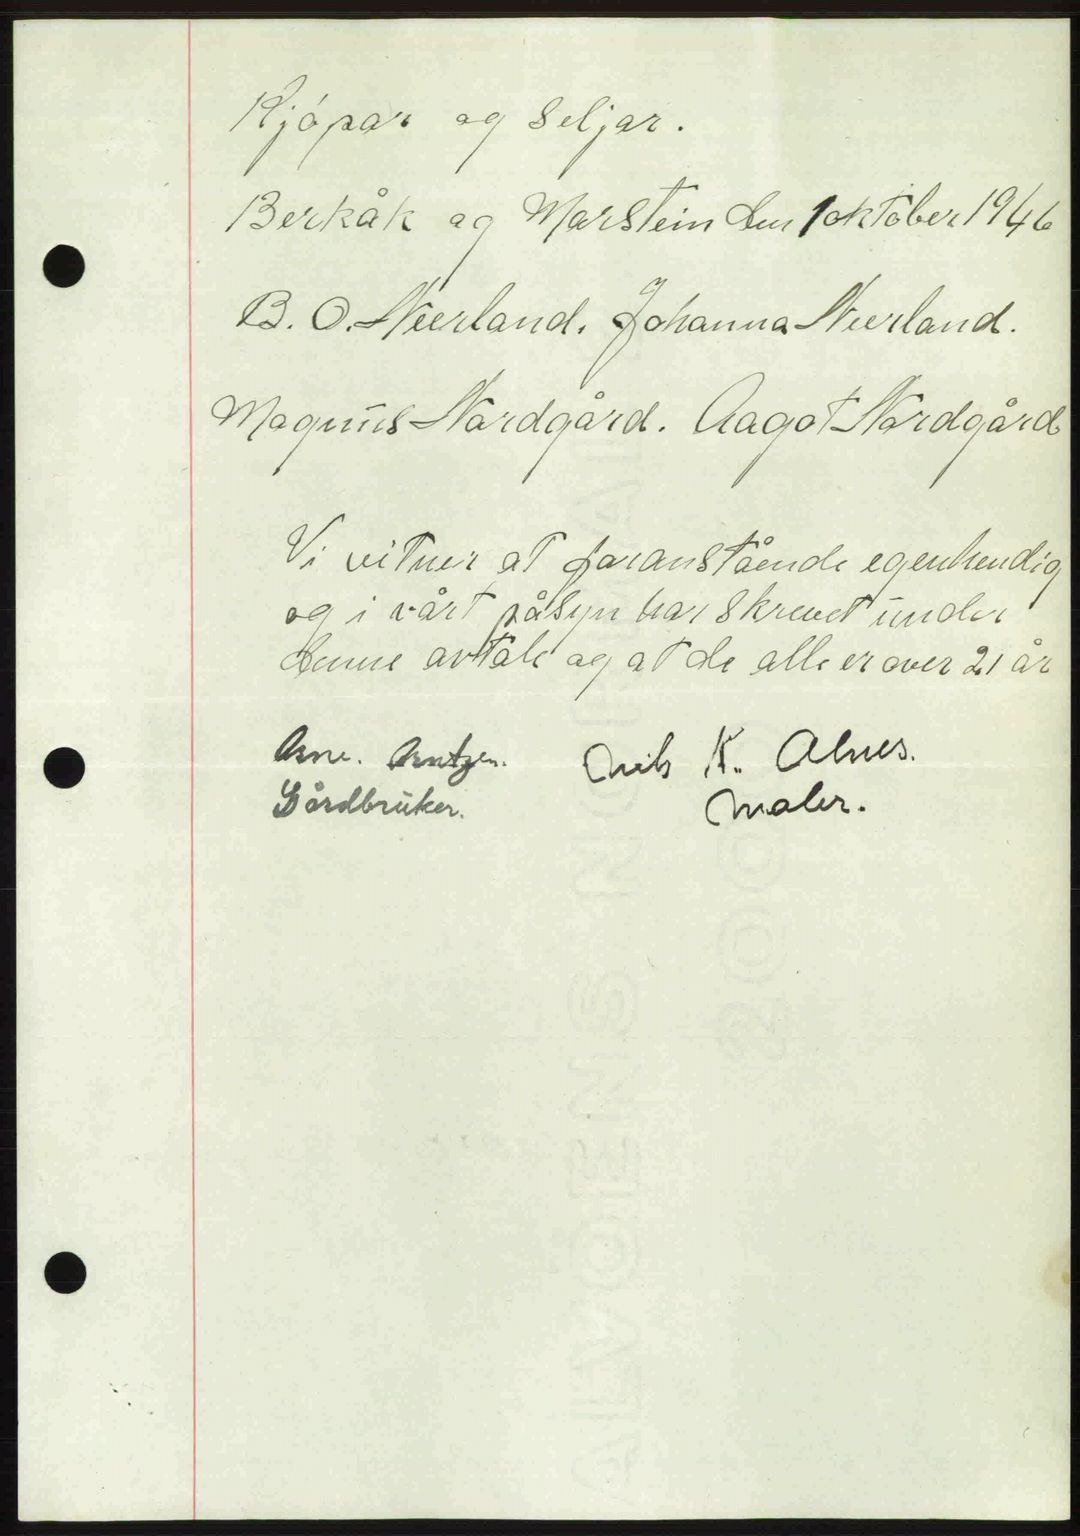 Kjøpar og seljar.
Berkåk og Marstein den 1 oktober 1946
B. O. Neerland. Johanna Neerland.
Magnus Nordgård. Aagot Nordgård
Vi vitner at foranstående egenhendig
og i vårt påsyn har skrevet under
denne avtale og at de alle er over 21 år
Arne. Arntzen. Nils K. Alnes.
Gårdbruker. Maler.
ALVØENS NORMAL
200